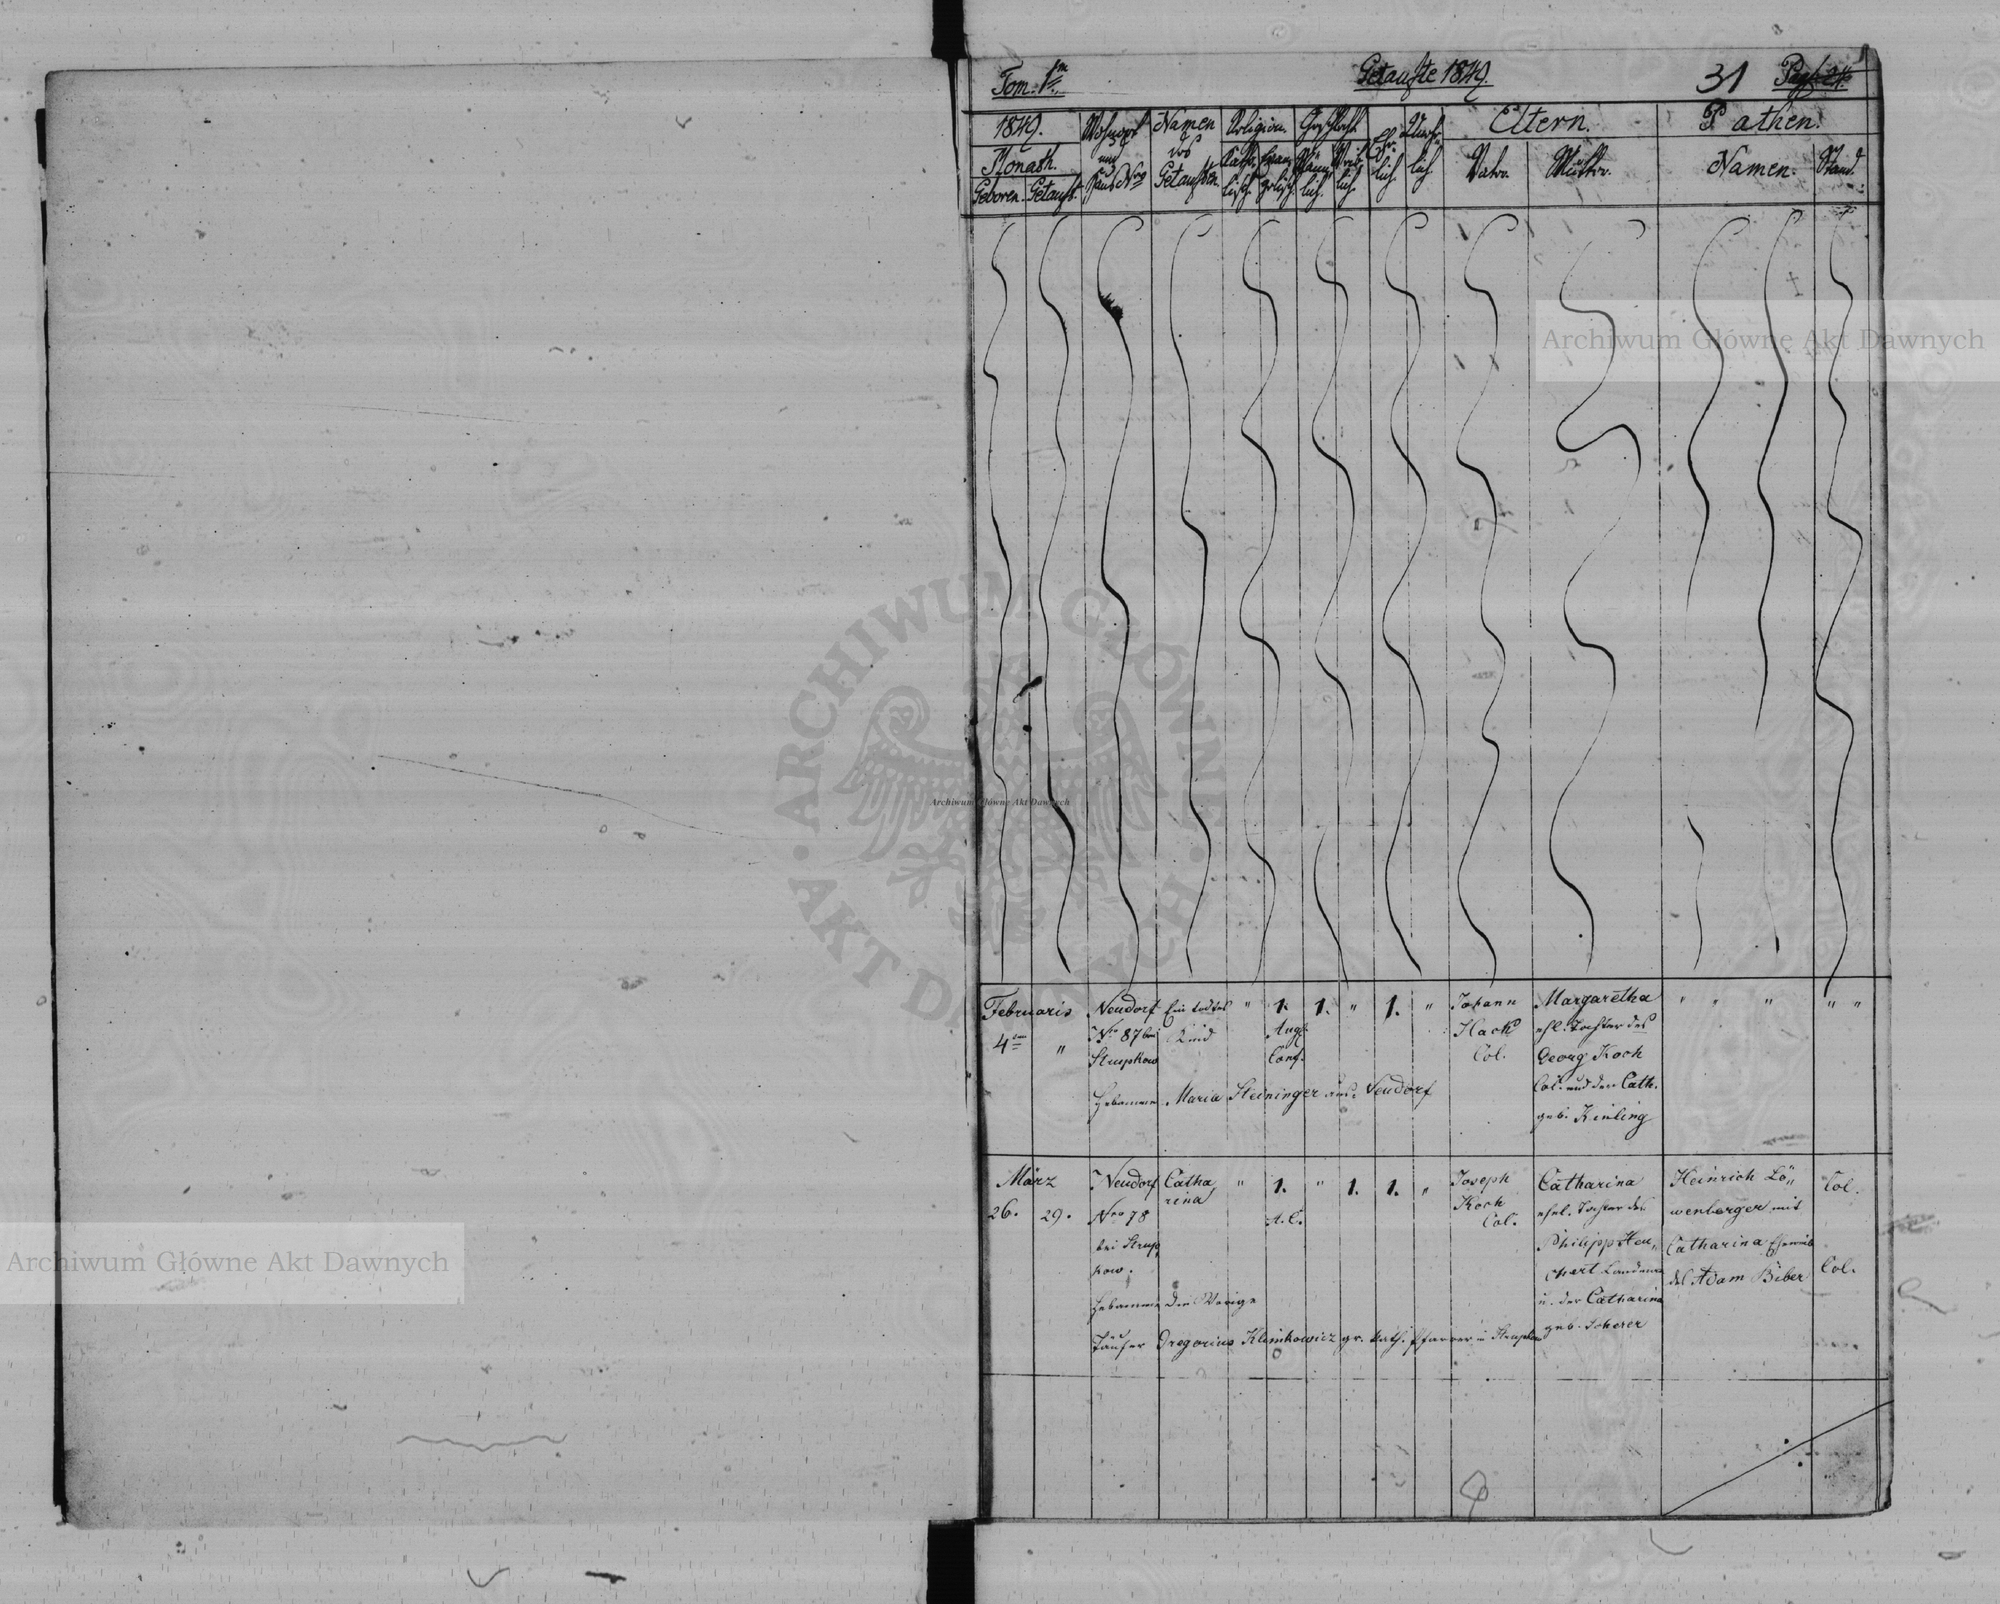 Tom. 1m
Getaufte 1849.
31
Pag. 21.
1849.
Monath.
Geboren.
Getauft.
Wohnort
und
Haus Nro
Namen
des
Getauften.
Religion.
Catho-
lisch.
Evan-
gelisch.
Geschlecht.
Männ-
lich.
Weib-
lich.
Ehe-
lich.
Uneh-
lich.
Eltern.
Vater.
Mutter.
Pathen.
Namen.
Stand.
Februaris
4ten
"
Neudorf
Nro 87 bei
Strupkow
Ein todtes
Kind
"
1.
Augs.
Conf.
1.
"
1.
"
Johann
Hack
Col.
Margaretha
ehl. Tochter des
Georg Koch
Col. und der Cath.
geb. Kinling
" " "
" "
Hebamme Maria Steininger aus Neudorf
März
26.
29.
Neudorf
Nro 78
bei Strup
kow.
Catha
rina
"
1.
A. C.
"
1.
1.
"
Joseph
Koch
Col.
Catharina
ehel. Tochter des
Philipp Heu„
chert
u. der Catharina
geb. Scherer
Heinrich Lö„
wenberger mit
Catharina Eheweib
des Adam Biber
Col.
Col.
Hebamme die Vorige
Täufer Gregorius Klimkowicz gr. kath. Pfarrer in Strupkow
Archiwum Główne Akt Dawnych
Archiwum Główne Akt Dawnych
Archiwum Główne Akt Dawnych
ARCHIWUM GŁÓWNE AKT DAWNYCH